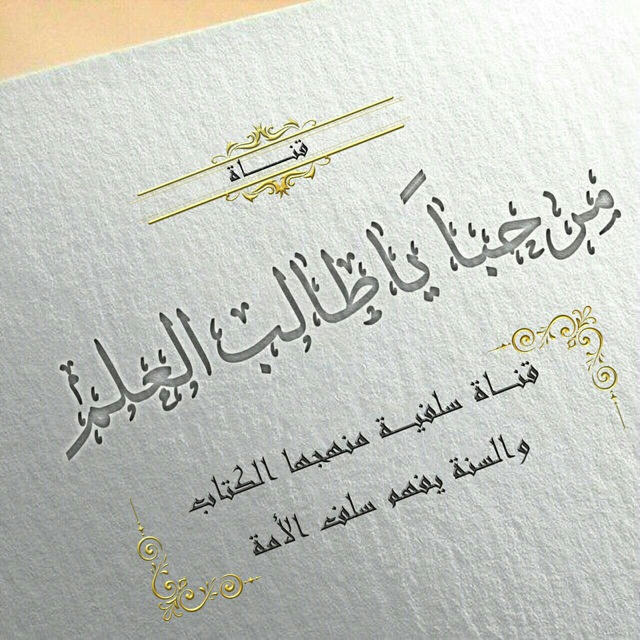 قناة
مرحبا يا طالب العلم
قناة سلفية منهجها الكتاب
والسنة بفهم سلف الأمة